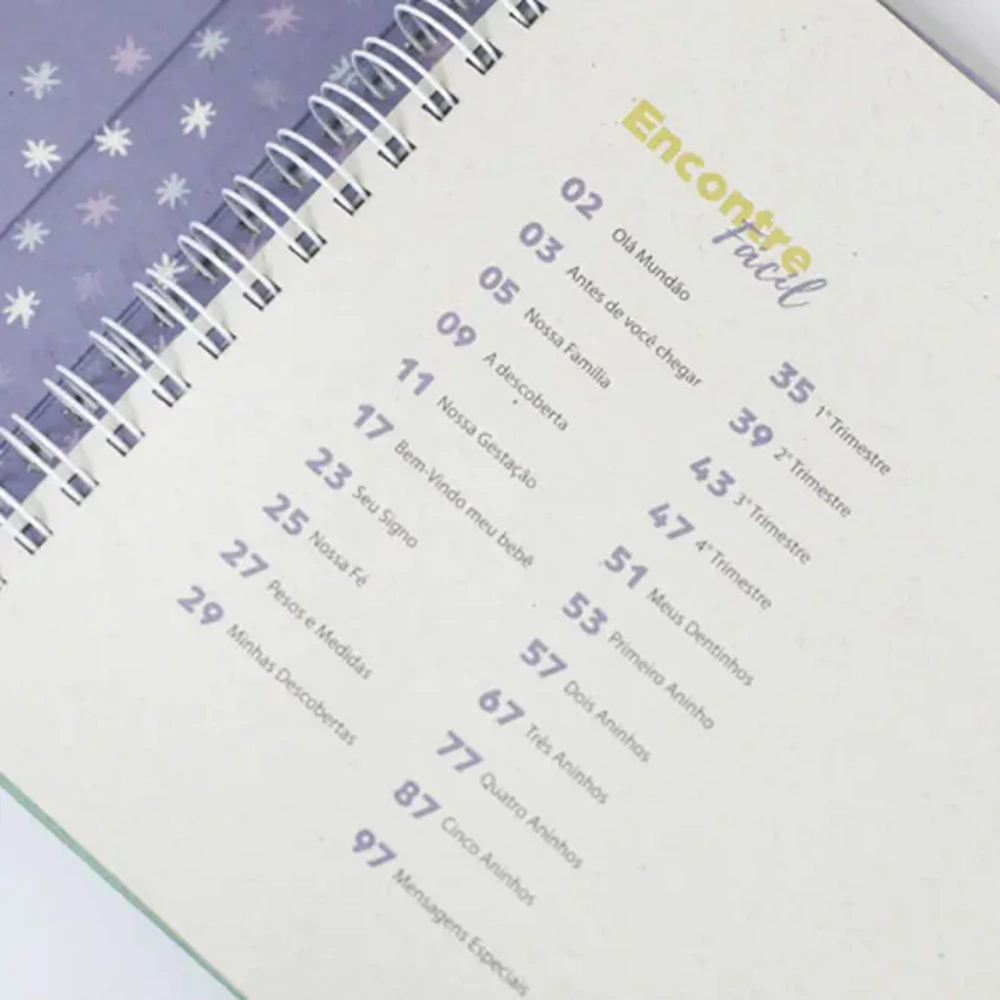 Encontre
Fácil
02 Olá Mundão
03 Antes de você chegar
05 Nossa Família
09 A descoberta
11 Nossa Gestação
17 Bem-Vindo meu bebê
23 Seu Signo
25 Nossa Fé
27 Pesos e Medidas
29 Minhas Descobertas
35 1º Trimestre
39 2º Trimestre
43 3º Trimestre
47 4º Trimestre
51 Meus Dentinhos
53 Primeiro Aninho
57 Dois Aninhos
67 Três Aninhos
77 Quatro Aninhos
87 Cinco Aninhos
97 Mensagens Especiais